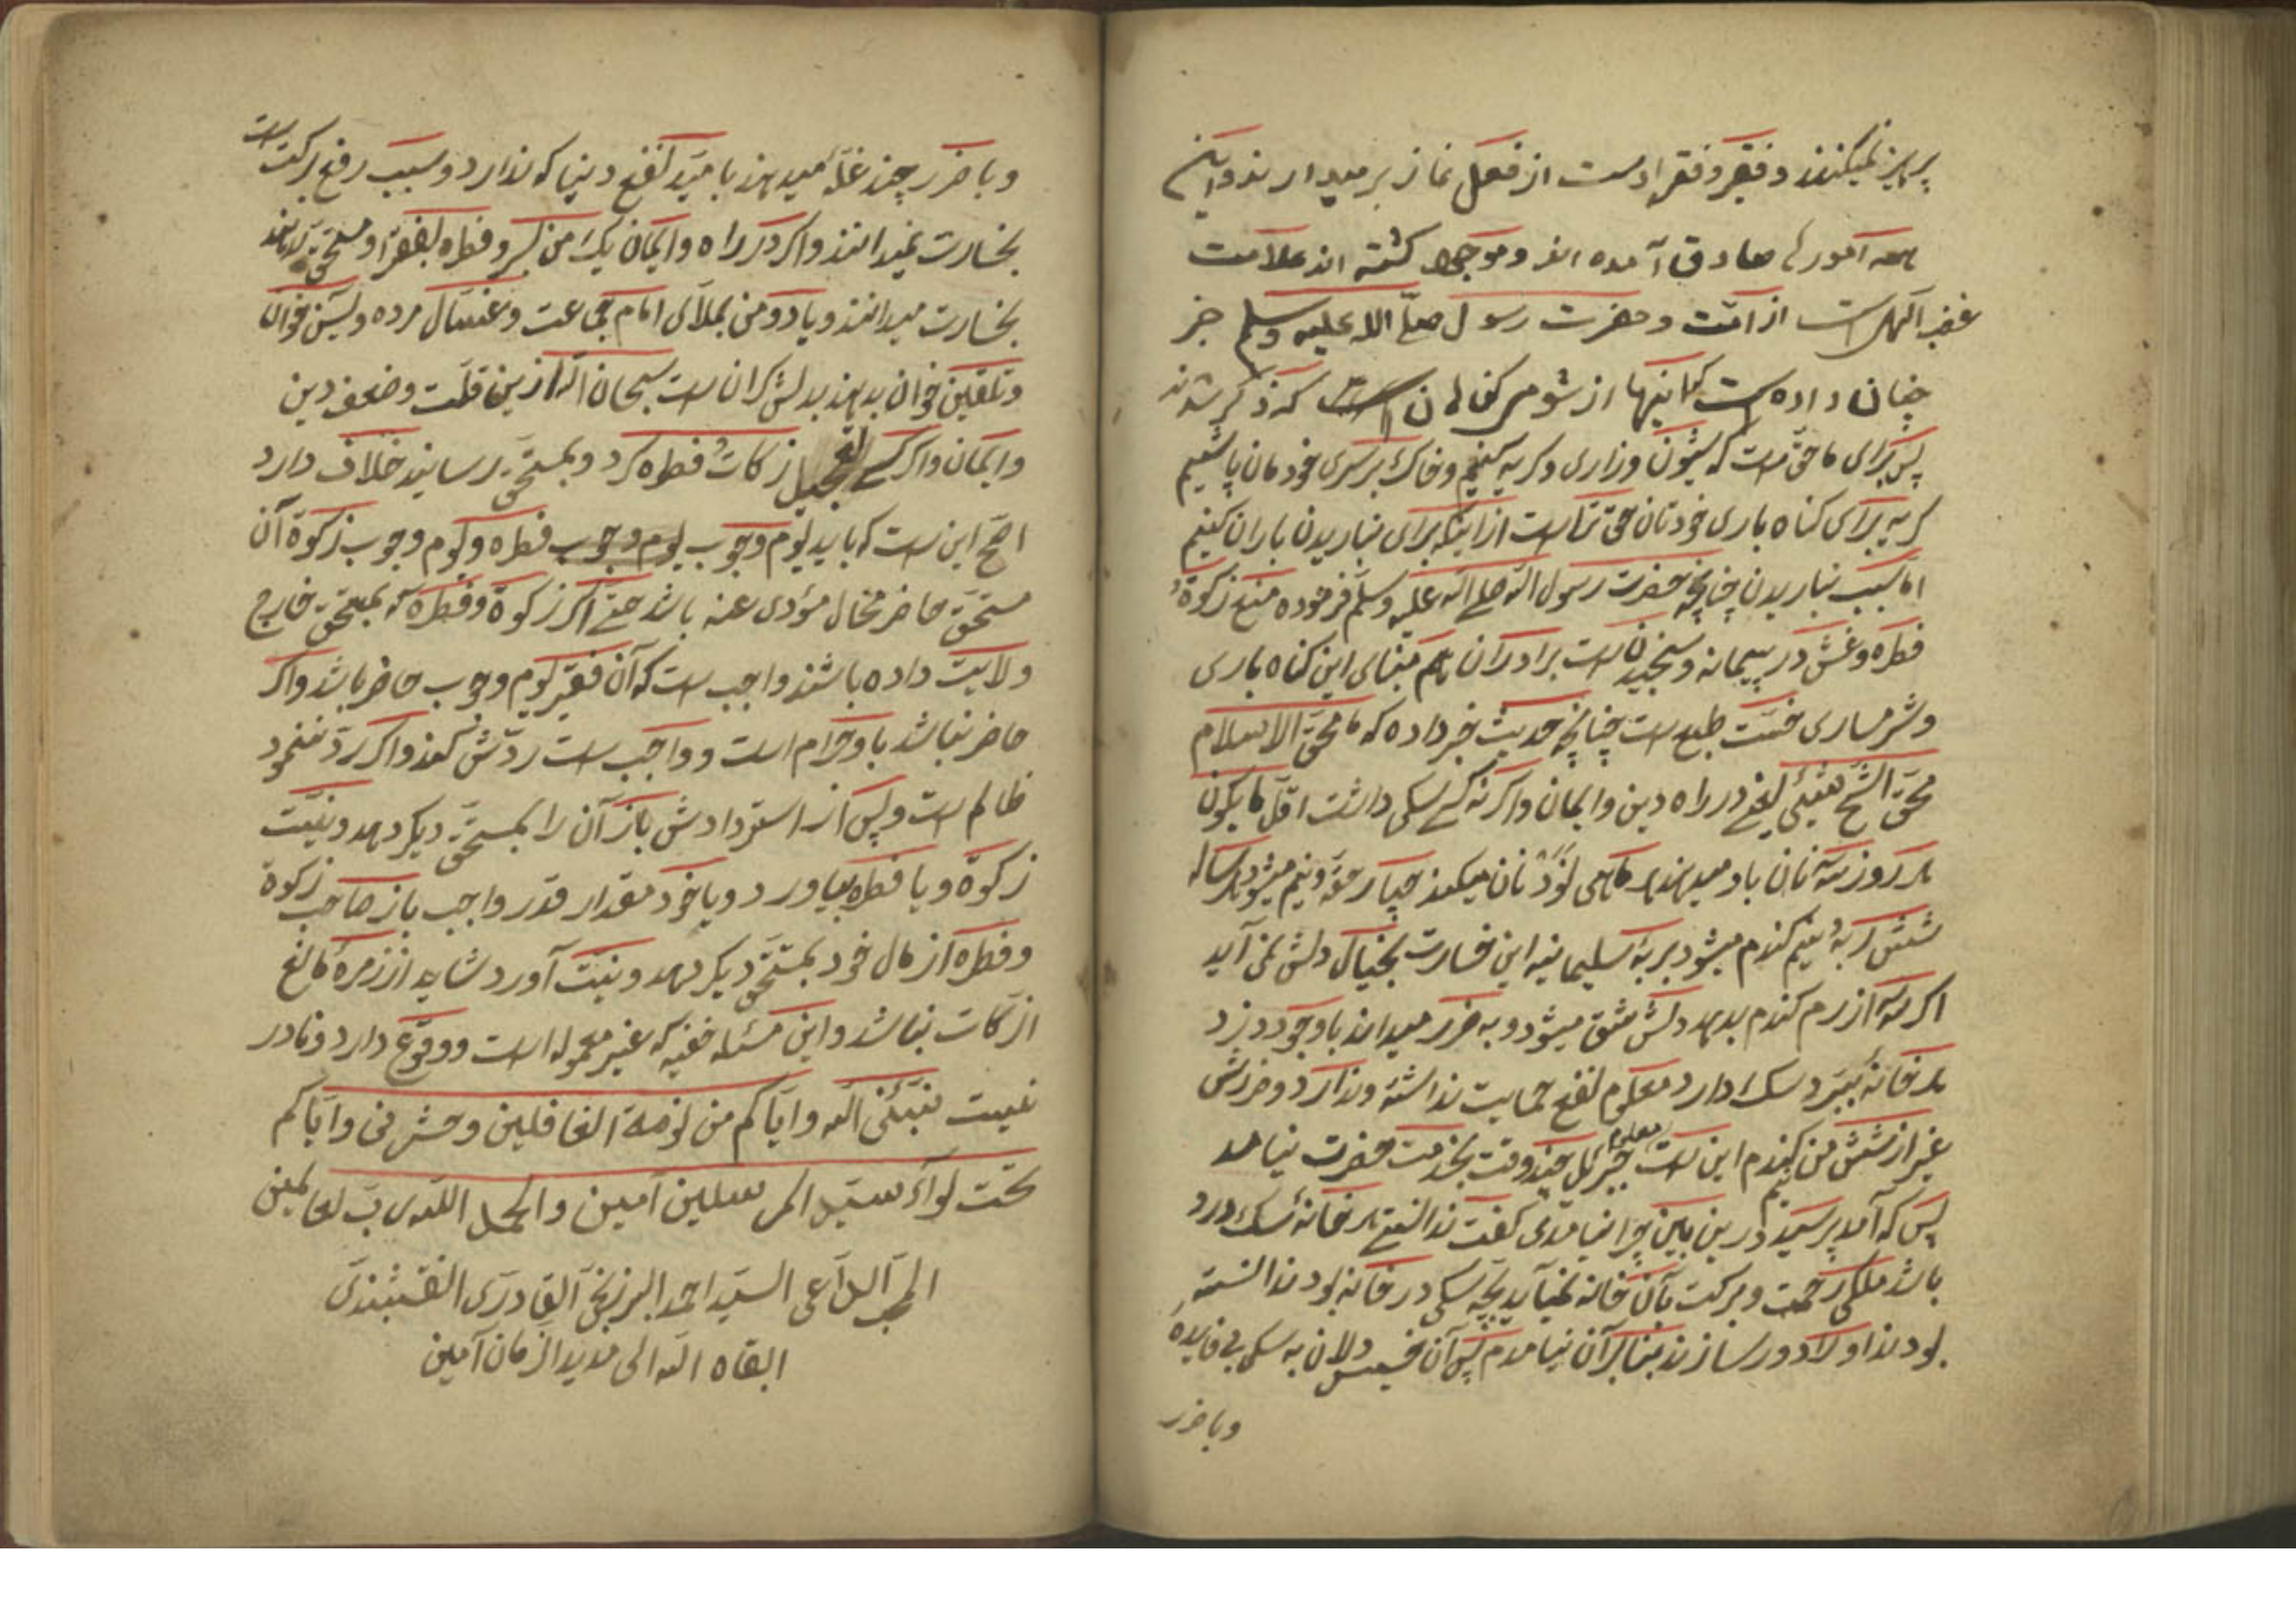 پرهیز نمیکنند و فقیر و فقرا دست از فعل نماز برمیدارند و این
همه امور صادق آمده اند و موجود کشته اند علامت
غضب الهی است از امّت و حضرت رسول صلّی الله علیه وسلم خبر
چنان داده است که اینها از شومی کناهان است که ذکر شدند
پس برای ما حق است که شیون و زاری و کریه کنیم و خاک بر سری خودمان پاشیم
کریه برای کناه باری خودتان حق تر است از اینکه برای نباریدن باران کنیم
امّا سبب نباریدن چنانچه حضرت رسول الله صلی الله علیه وسلّم فرموده منع زکوة
فطره و غش در پیمانه و سنجیدن است برادران هم مبنای این کناه باری
و شرمساری خسّت طبع است چنانچه حدیث خبر داده که ما محق الاسلام
محق الشح شیئ یعنی در راه دین و ایمان واکرنه کسی سکی داشت اقل ما یکون
هر روز سه نان باو میدهند
شش ربه و نیم کندم میشود بربه سلیمانیه این خسارت بخیال دلش نمی آید
اکر سه از رم کندم بدهد دلش شق میشود و به ضرر میداند با وجود دزد
هر خانه ببرد سک دارد معلوم نفع حمایت نداشته و ندارد و ضررش
غیر از شش من کندم این است جبرئیل چند وقت بخدمت حضرت نیامد
پس که آمد پرسید در ین بابین چرا نیامدی کفت ندانستی هر خانه سک درو
باشد ملکی رحمت و برکت بآن خانه نمیآید بچه سکی در خانه بود ندانسته
بودند او را دور سازند بنا بر آن نیامدم پس آن خسیس دلان به سکی بی فایده
وبا ضرر
وبا ضرر چند غلّه میدهند بامید نفع دنیا که ندارد و سبب رفع برکت است
بخسارت نمیدانند و اکر در راه و ایمان یک من کسر و فطره بفقرا و مستحق بدهند
بخسارت میدانند و یا دو من بملای امام جماعت و غسّال مرده و یسن خوان
و تلقین خوان بدهند بدلش کران است سبحان الله از ین قلّت و ضعف دین
و ایمان و اکر کسی تعجیل زکات فطره کرد و بمستحق رسانید خلاف دارد
اصح این است که باید یوم وجوب یوم وجوب فطره و یوم وجوب زکوة آن
مستحق حاضر محال مؤدی عنه باشد حتی اکر زکوة و فطره که بمستحق خارج
ولایت داده باشند واجب است که آن فقیر یوم وجوب حاضر باشد و اکر
حاضر نباشد باو حرام است و واجب است ردّش کند و اکر ردّ ننمود
ظالم است و پس از استردادش باز آن را بمستحق دیکر دهد و نیّت
زکوة و یا فطره بیاورد و یا خود مقدار قدر واجب باز صاحب زکوة
و فطره از مال خود بمستحق دیکر دهد و نیّت آورد شاید از زمرهٔ مانع
از کات نباشد و این مسئله خفیه که غیر معموله است و وقوع دارد و نادر
نیست نبّئنی الله و ایّاکم من نومة الغافلین و حشرنی و ایّاکم
تحت لواء سیّد المرسلین آمین والحمد الله رب العالمین
المجر الداعی السیّد احمد البرزنجی القادری النقشبندی
ابقاه الله الی مدید الزمان آمین